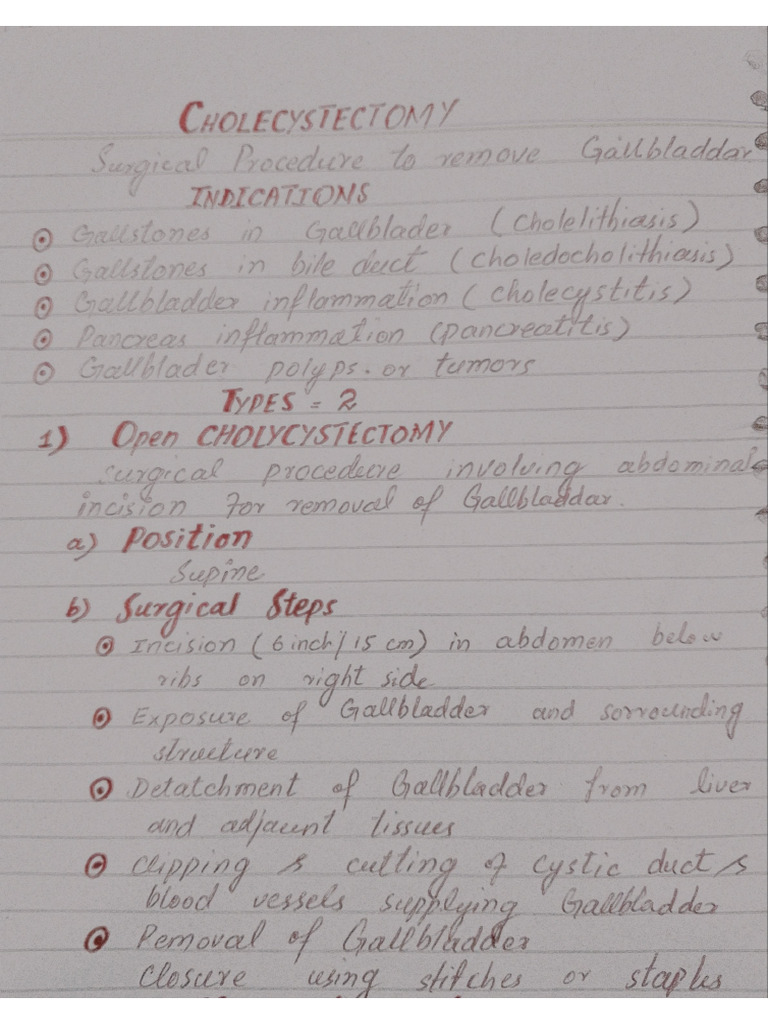 CHOLECYSTECTOMY
Surgical Procedure to remove Gallbladdar
INDICATIONS
Gallstones in Gallblader (cholelithiasis)
Gallstones in bile duct (choledocholithiasis)
Gallbladder inflammation (cholecystitis)
Pancreas inflammation (pancreatitis)
Gallblader polyps. or tumors
TYPES = 2
1) Open CHOLYCYSTECTOMY
surgical procedure involving abdominal
incision for removal of Gallbladdar.
a) Position
Supine
b) Surgical Steps
Incision (6 inch/15 cm) in abdomen below
ribs on right side
Exposure of Gallbladder and sorrounding
structure
Detatchment of Gallbladder from liver
and adjacent tissues
clipping & cutting of cystic duct &
blood vessels supplying Gallbladder
Removal of Gallbladder
closure using stitches or staples